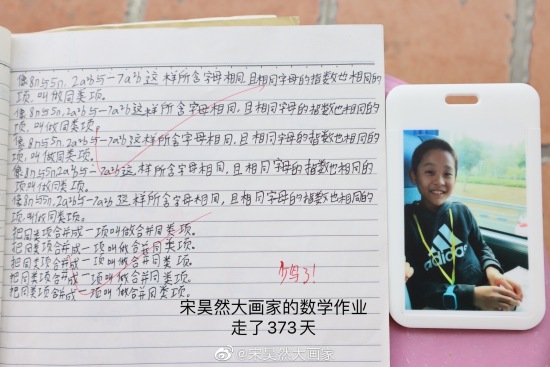 像8n与5n,2a²b与-7a²b这样所含字母相同,且相同字母的指数也相同的
项,叫做同类项。
像8n与5n,2a²b与-7a²b这样所含字母相同,且相同字母的指数也相同的
项,叫做同类项。
像8n与5n,2a²b与-7a²b这样所含字母相同,且相同字母的指数也相同的
项,叫做同类项。
像8n与5n2a²b与-7a²b这样所含字母相同,且相同字母的指数也相同的
项叫做同类项。
像8n与5n,2a²b与-7a²b这样所含字母相同,且相同字母的指数也相同的
项.叫做同类项。
把同类项合并成一项叫做合并同类项。
把同类项合并成一项叫做合并同类项。
把同类项合并成一项叫做合并同类项。
把同类项合并成一项叫做合并同类项。
把同类项合并成一项叫做合并同类项。
adidas
宋昊然大画家的数学作业
走了373天
@宋昊然大画家